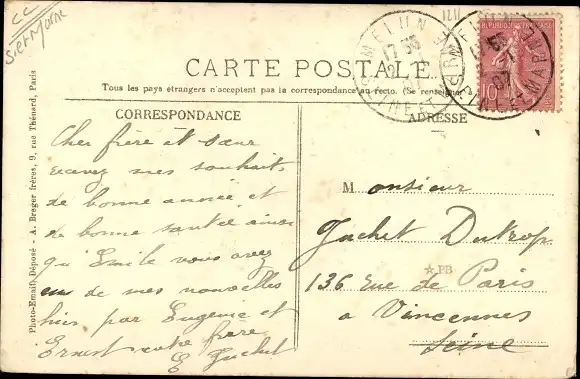 CC
S et Marne
1211
CARTE POSTALE
Tous les pays étrangers n'acceptent pas la correspondance au recto. (Se renseigner
CORRESPONDANCE
ADRESSE
Cher frère et sœur
recevez mes souhaits
de bonne année et
de bonne santée ainsi
qu'Emile vous avez
eu de mes nouvelles
hier par Eugenie et
Ernest votre frère
E Guchet
Monsieur
Guchet Dutrop
136 rue de Paris
a Vincennes
Seine
☆PB
Photo-Email, Déposé - A. Breger frères, 9, rue Thénard, Paris
MELUN
17 35
SEINE ET MARNE
MELUN
07
SEINE ET MARNE
10